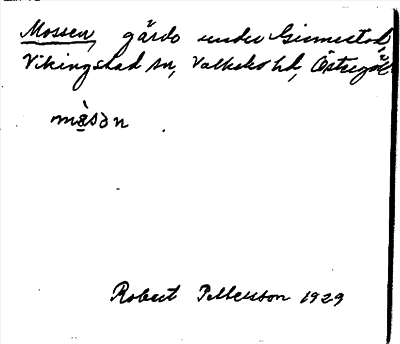 Mossen, gårds under Gismestad,
Vikingstad sn, Valkebo hd, Östergötl
måsən
Robert Pettersson 1929